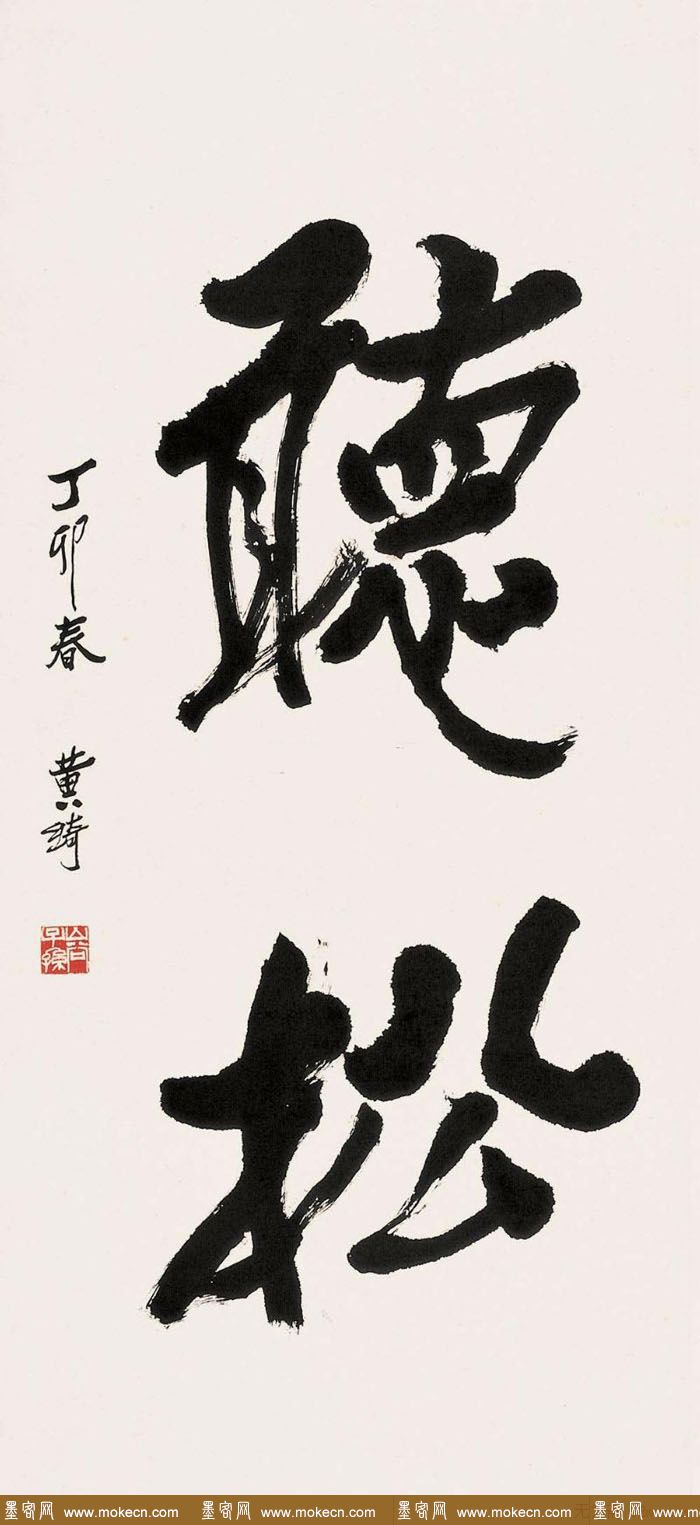 聽松
丁卯春 黄琦
墨客网 www.mokecn.com 墨客网 www.mokecn.com 墨客网 www.mokecn.com 墨客网 www.m